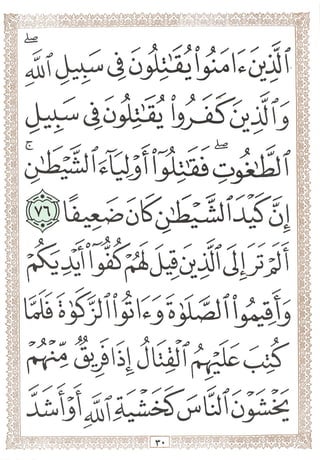 ٱلَّذِينَ ءَامَنُوا۟ يُقَٰتِلُونَ فِى سَبِيلِ ٱللَّهِ ۖ
وَٱلَّذِينَ كَفَرُوا۟ يُقَٰتِلُونَ فِى سَبِيلِ
ٱلطَّٰغُوتِ فَقَٰتِلُوٓا۟ أَوْلِيَآءَ ٱلشَّيْطَٰنِ ۖ
إِنَّ كَيْدَ ٱلشَّيْطَٰنِ كَانَ ضَعِيفًا ٧٦
أَلَمْ تَرَ إِلَى ٱلَّذِينَ قِيلَ لَهُمْ كُفُّوٓا۟ أَيْدِيَكُمْ
وَأَقِيمُوا۟ ٱلصَّلَوٰةَ وَءَاتُوا۟ ٱلزَّكَوٰةَ فَلَمَّا
كُتِبَ عَلَيْهِمُ ٱلْقِتَالُ إِذَا فَرِيقٌ مِّنْهُمْ
يَخْشَوْنَ ٱلنَّاسَ كَخَشْيَةِ ٱللَّهِ أَوْ أَشَدَّ
٣٠